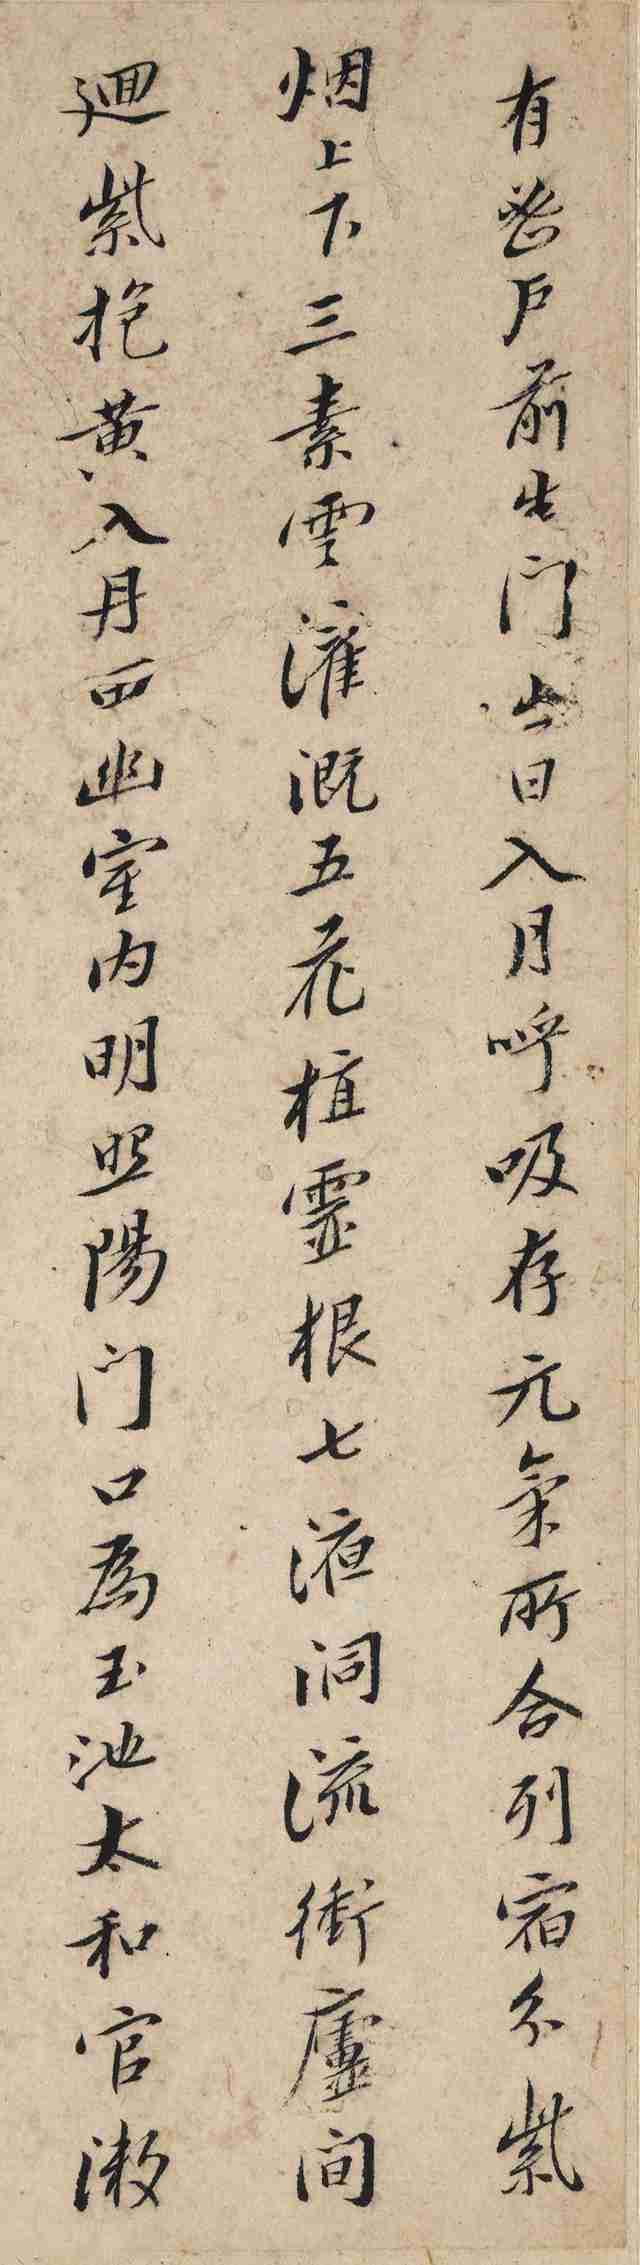 有密戶前生門出日入月呼吸存元氣所合列宿分紫
烟上下三素雲灌溉五花植靈根七液洞流衝廬間
迴紫抱黃入丹田幽室內明照陽門口為玉池太和官漱